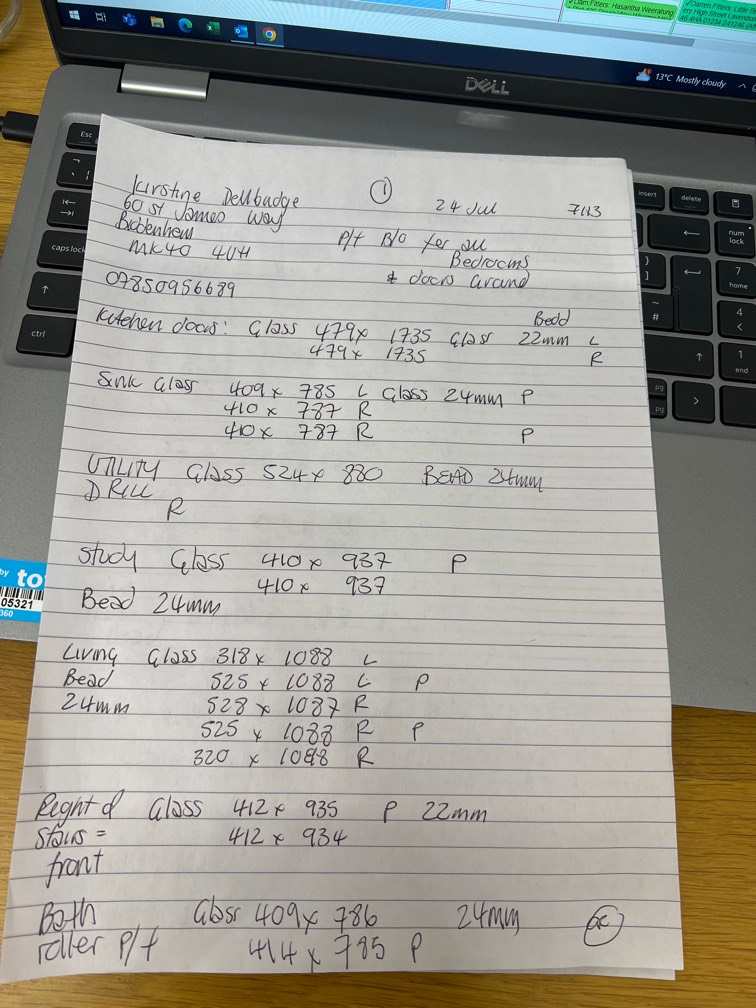 Liam Fitters: Hasantha Weeratung
Darren Fitters: Little B
ery High Street Lavend
13°C Mostly cloudy
DELL
Esc
insert
delete
num
lock
caps lock
7
home
4
ctrl
1
end
pg
pg
by to
05321
360
Kirstine Dellbudge
① 24 Jul 7113
60 St James Way
Biddenham
P/t B/O for all
MK40 4UH
Bedrooms
& doors Ground
07850956689
Kitchen doors: Glass 479 x 1735 Glass Bedd 22mm L
479 x 1735 R
Sink Glass 409 x 785 L Glass 24mm P
410 x 787 R
410 x 787 R P
UTILITY Glass 524 x 880 BEAD 24mm
DRILL
R
Study Glass 410 x 937 P
410 x 937
Bead 24mm
Living Glass 318 x 1088 L
Bead 525 x 1088 L P
24mm 528 x 1087 R
525 x 1088 R P
320 x 1088 R
Right d Glass 412 x 935 P 22mm
Stairs = 412 x 934
front
Bath Glass 409 x 786 24mm
roller P/t 414 x 785 P